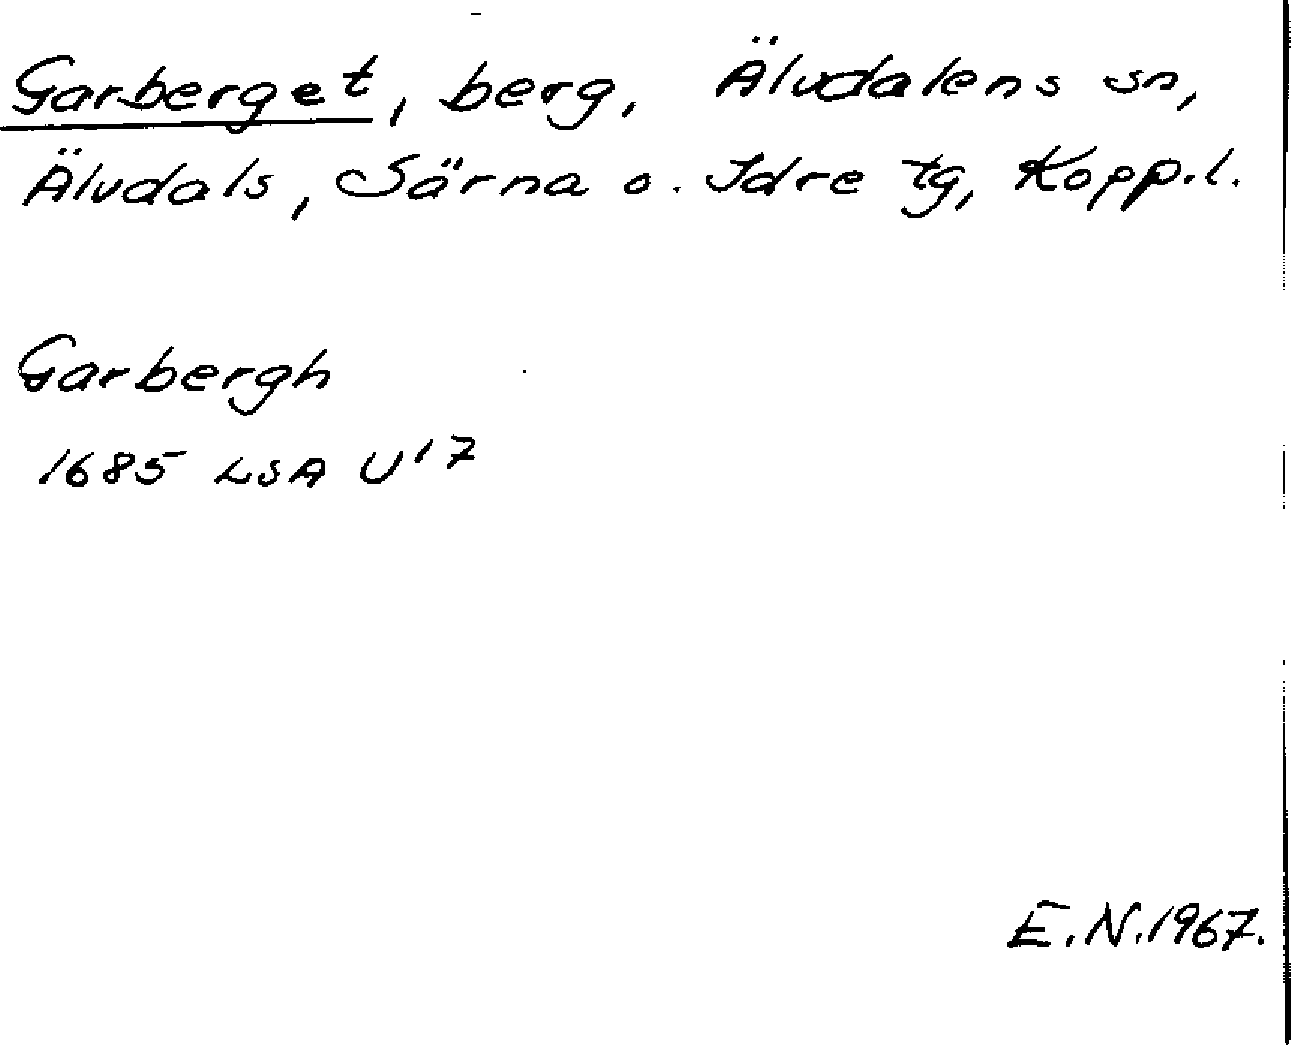 Garberget, berg, Älvdalens sn,
Älvdals, Särna o. Idre tg, Kopp.l.
Garbergh
1685 LSA U17
E.N.1967.